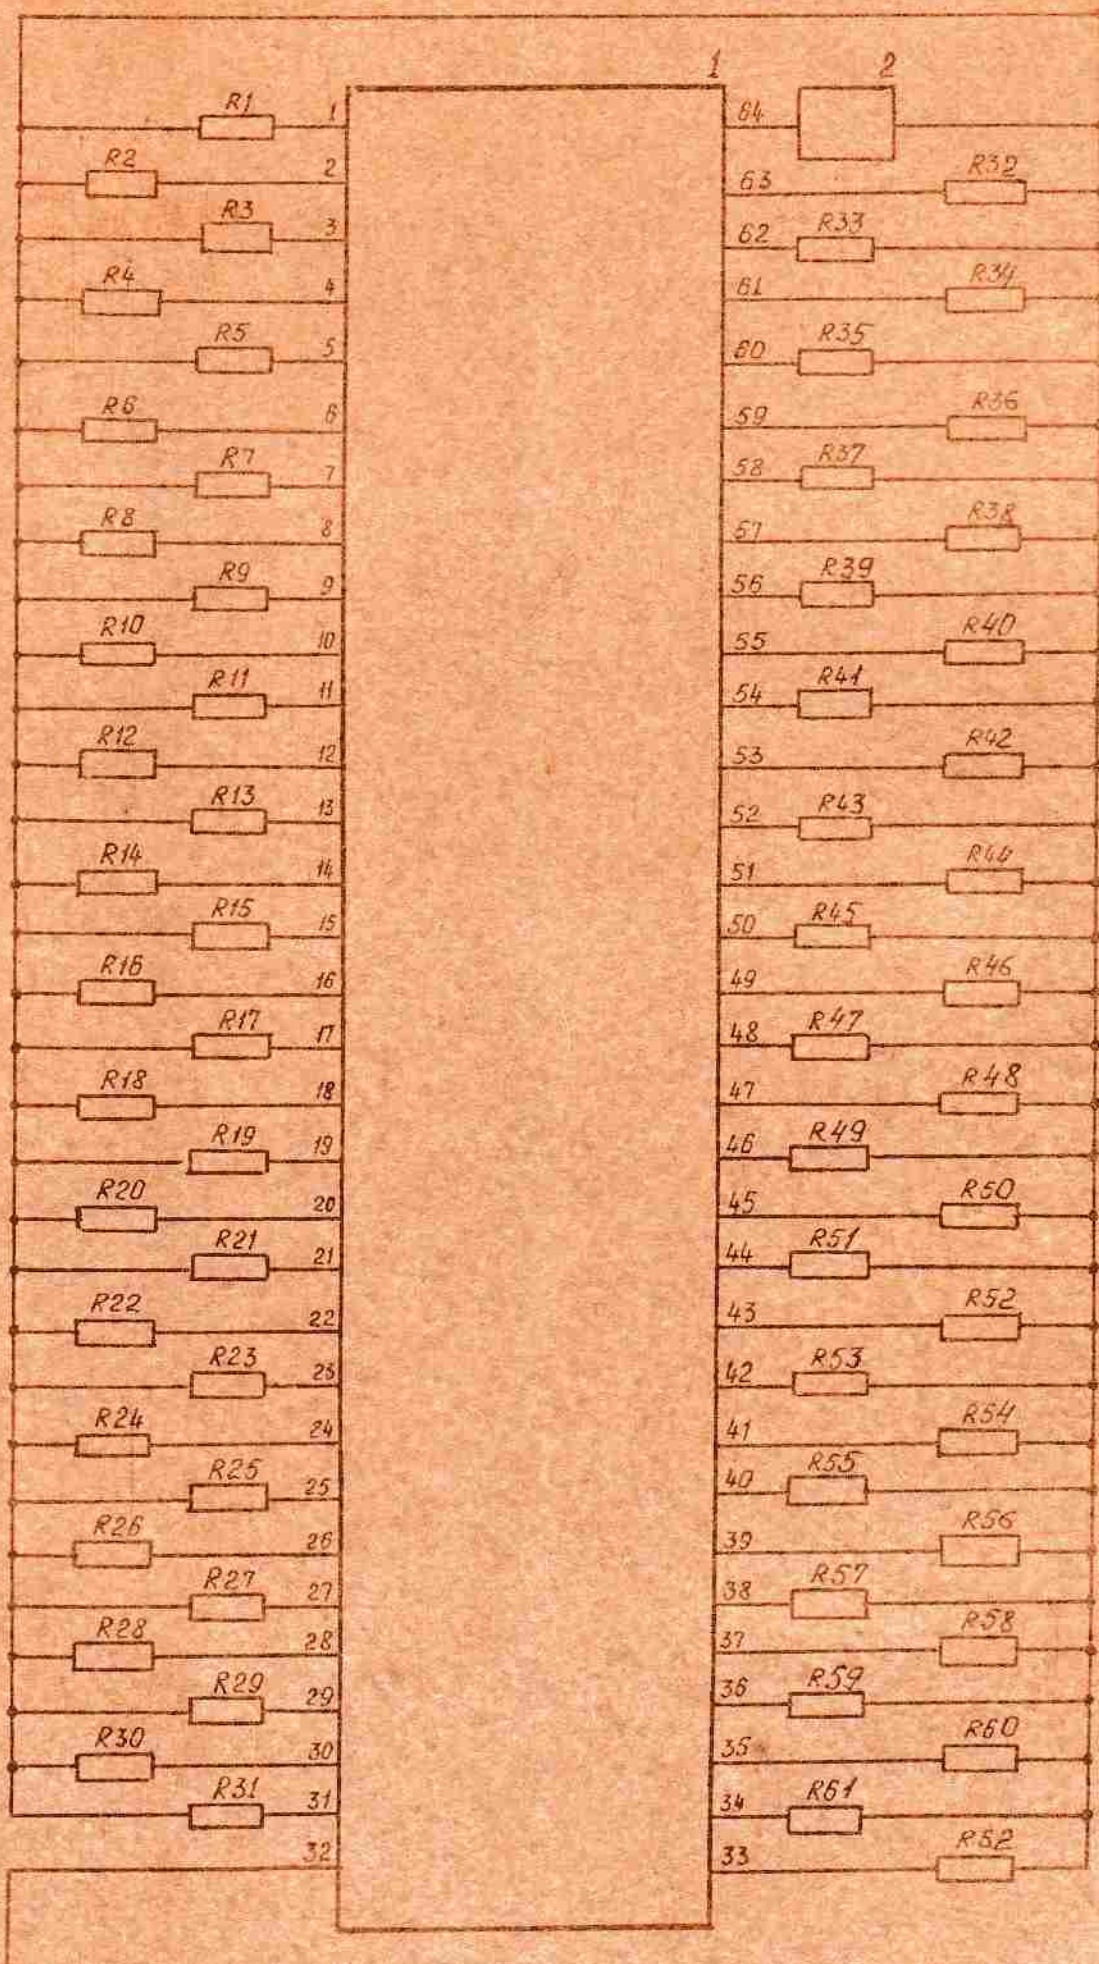 1 2
R1 1
R2 2
R3 3
R4 4
R5 5
R6 6
R7 7
R8 8
R9 9
R10 10
R11 11
R12 12
R13 13
R14 14
R15 15
R16 16
R17 17
R18 18
R19 19
R20 20
R21 21
R22 22
R23 23
R24 24
R25 25
R26 26
R27 27
R28 28
R29 29
R30 30
R31 31
32
64
63 R32
62 R33
61 R34
60 R35
59 R36
58 R37
57 R38
56 R39
55 R40
54 R41
53 R42
52 R43
51 R44
50 R45
49 R46
48 R47
47 R48
46 R49
45 R50
44 R51
43 R52
42 R53
41 R54
40 R55
39 R56
38 R57
37 R58
36 R59
35 R60
34 R61
33 R52